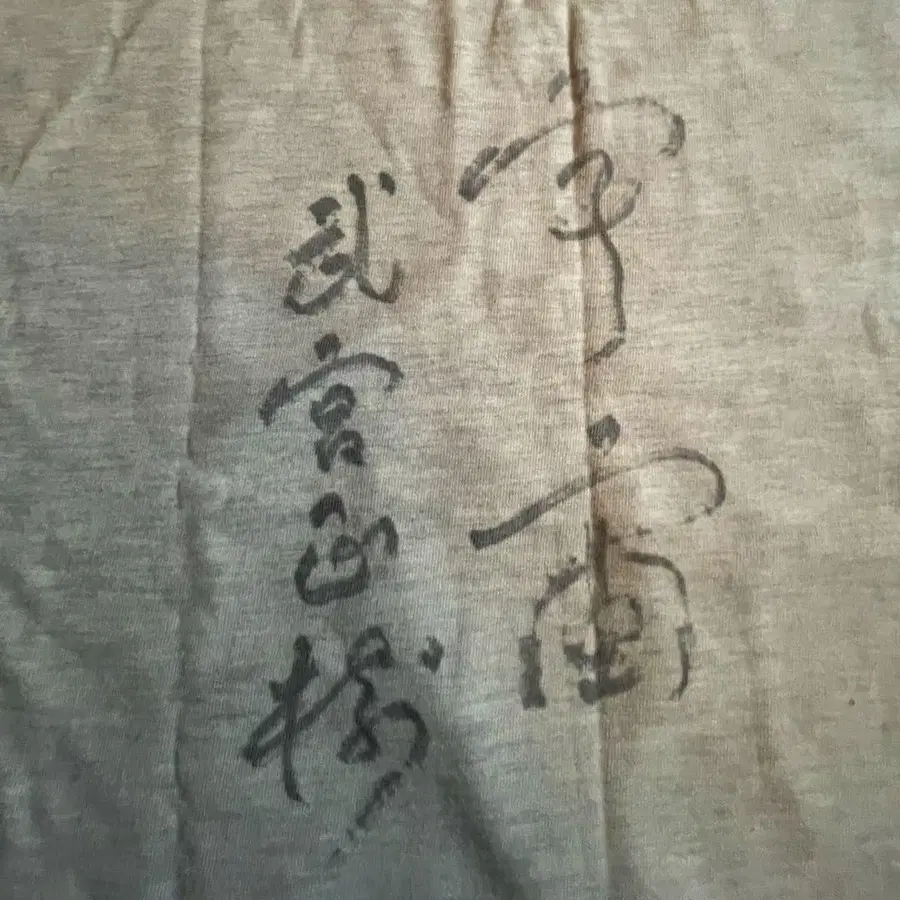 宇宙
武宮正樹